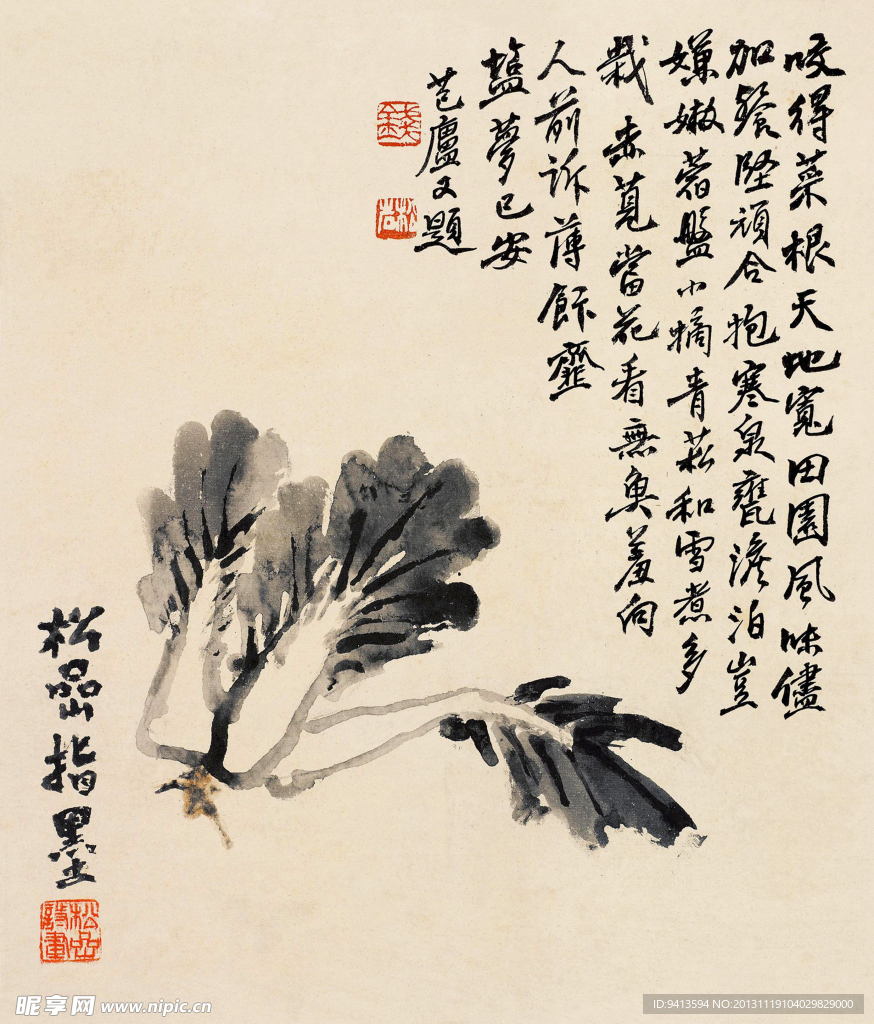 咬得菜根天地寬田園風味儘
加餐堅頑合抱寒泉甕澹泊豈
嫌嫩盤小摘青菘和雪煮多
栽赤莧當花看無魚羞向
人前訴薄飰齏
鹽夢已安
芑廬又題
錢
松岩
松喦指墨
松喦詩畫
昵享网 www.nipic.cn
ID:9413594 NO:20131119104029829000